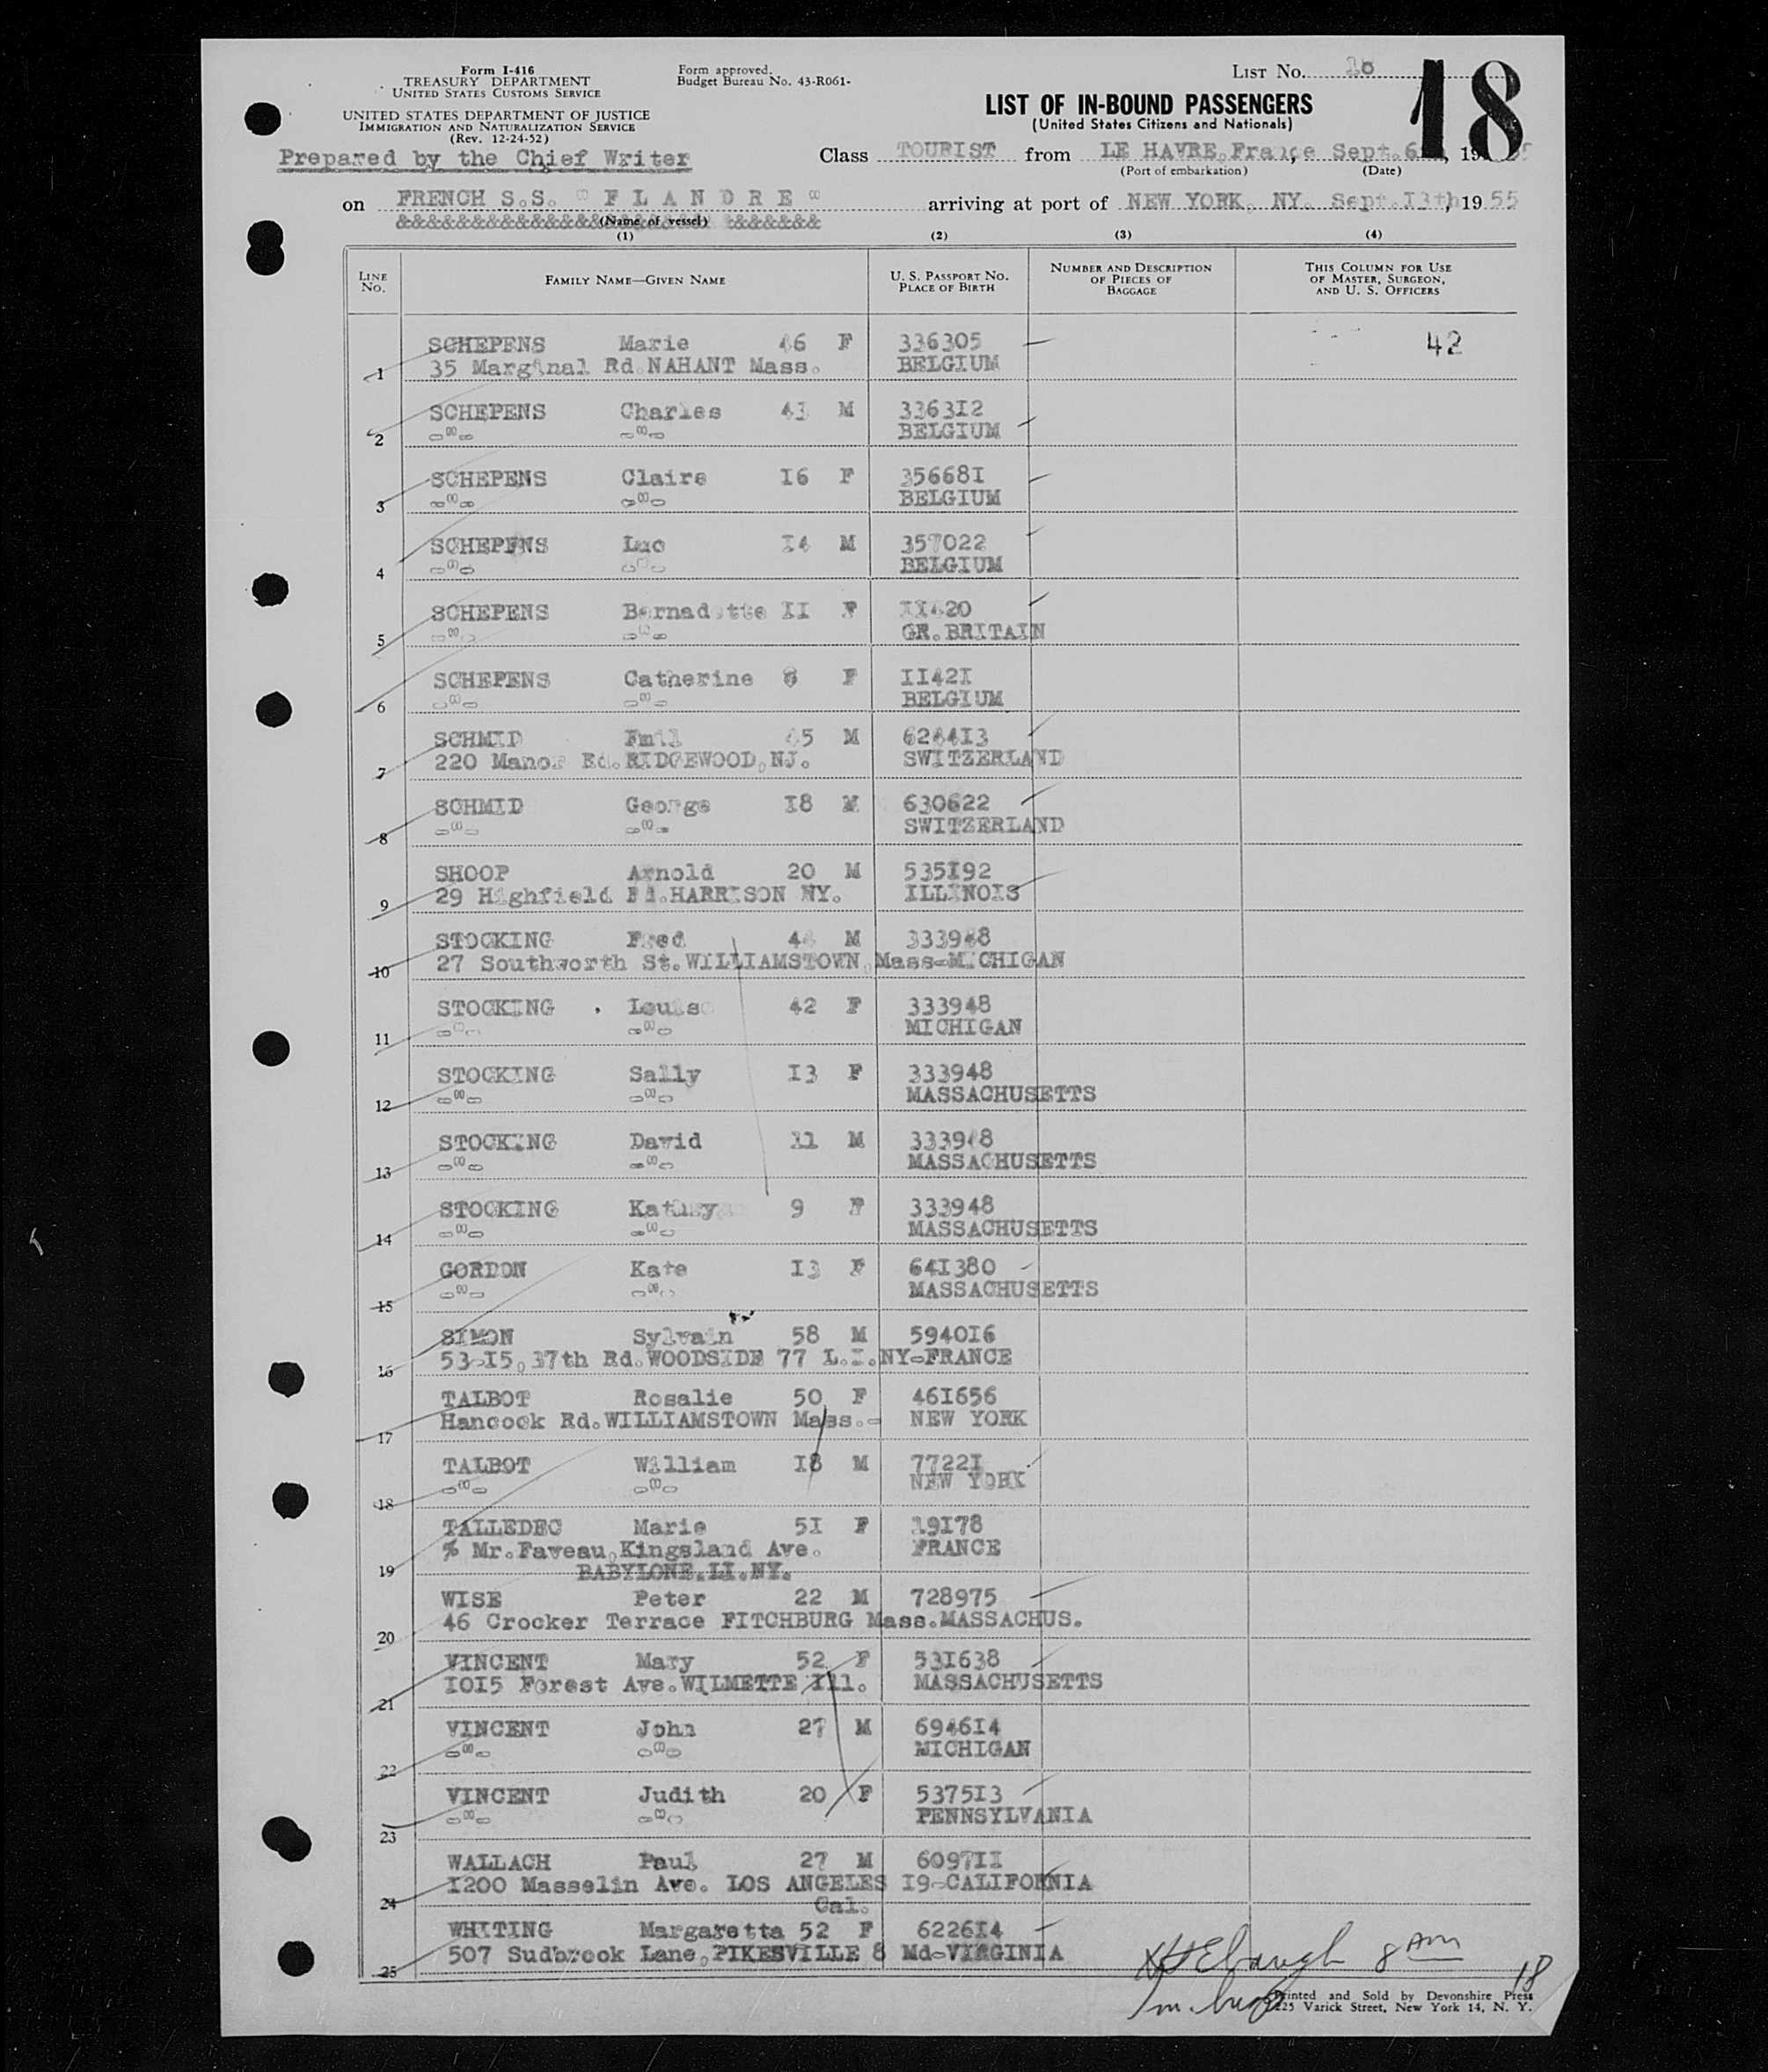 Form I-416
TREASURY DEPARTMENT
UNITED STATES CUSTOMS SERVICE
UNITED STATES DEPARTMENT OF JUSTICE
IMMIGRATION AND NATURALIZATION SERVICE
(Rev. 12-24-52)
Form approved.
Budget Bureau No. 43-R061-
LIST No. 18
18
LIST OF IN-BOUND PASSENGERS
(United States Citizens and Nationals)
Prepared by the Chief Writer
Class TOURIST from LE HAVRE, France, Sept. 19
(Port of embarkation) (Date)
on FRENCH S.S. "FLANDRE" arriving at port of NEW YORK, NY. Sept.I3th, 1955
(Name of vessel)
(1) (2) (3) (4)
LINE No. FAMILY NAME—GIVEN NAME U. S. PASSPORT No. PLACE OF BIRTH NUMBER AND DESCRIPTION OF PIECES OF BAGGAGE THIS COLUMN FOR USE OF MASTER, SURGEON, AND U. S. OFFICERS
SCHEPENS Marie 46 F 336305 42
1 35 Marginal Rd.NAHANT Mass. BELGIUM
SCHEPENS Charles 43 M 3363I2
2 -"- -"- BELGIUM
SCHEPENS Claire I6 F 35668I
3 -"- -"- BELGIUM
SCHEPENS Luc I4 M 357022
4 -"- -"- BELGIUM
SCHEPENS Bernadette II F II420
5 -"- -"- GR.BRITAIN
SCHEPENS Catherine F II42I
6 -"- -"- BELGIUM
SCHMID Emil 45 M 6244I3
7 220 Manor Rd.RIDGEWOOD,NJ. SWITZERLAND
SCHMID George I8 M 630622
8 -"- -"- SWITZERLAND
SHOOP Arnold 20 M 535I92
9 29 Highfield Rd.HARRISON NY. ILLINOIS
STOCKING Fred 44 M 333948
10 27 Southworth St.WILLIAMSTOWN Mass-MICHIGAN
STOCKING Louise 42 F 333948
11 -"- -"- MICHIGAN
STOCKING Sally I3 F 333948
12 -"- -"- MASSACHUSETTS
STOCKING David 11 M 333948
13 -"- -"- MASSACHUSETTS
STOCKING 9 F 333948
14 -"- -"- MASSACHUSETTS
GORDON Kate I3 F 64I380
15 -"- -"- MASSACHUSETTS
SIMON Sylvain 58 M 5940I6
16 53-I5,37th Rd.WOODSIDE 77 L.I.NY-FRANCE
TALBOT Rosalie 50 F 46I656
17 Hancock Rd.WILLIAMSTOWN Mass.- NEW YORK
TALBOT William I8 M 7722I
18 -"- -"- NEW YORK
TALLEDEC Marie 5I F 19I78
% Mr.Faveau,Kingsland Ave. FRANCE
19 BABYLONE.LI.NY.
WISE Peter 22 M 728975
20 46 Crocker Terrace FITCHBURG Mass.MASSACHUS.
VINCENT Mary 52 F 53I638
21 I0I5 Forest Ave.WILMETTE Ill. MASSACHUSETTS
VINCENT John 27 M 6946I4
22 -"- -"- MICHIGAN
VINCENT Judith 20 F 5375I3
23 -"- -"- PENNSYLVANIA
WALLACH Paul 27 M 6097II
I200 Masselin Ave. LOS ANGELES I9-CALIFORNIA
24 Cal.
WHITING Margaretta 52 F 6226I4
25 507 Sudbrook Lane,PIKESVILLE 8 Md-VIRGINIA
8 AM
18
Printed and Sold by Devonshire Press
225 Varick Street, New York 14, N. Y.